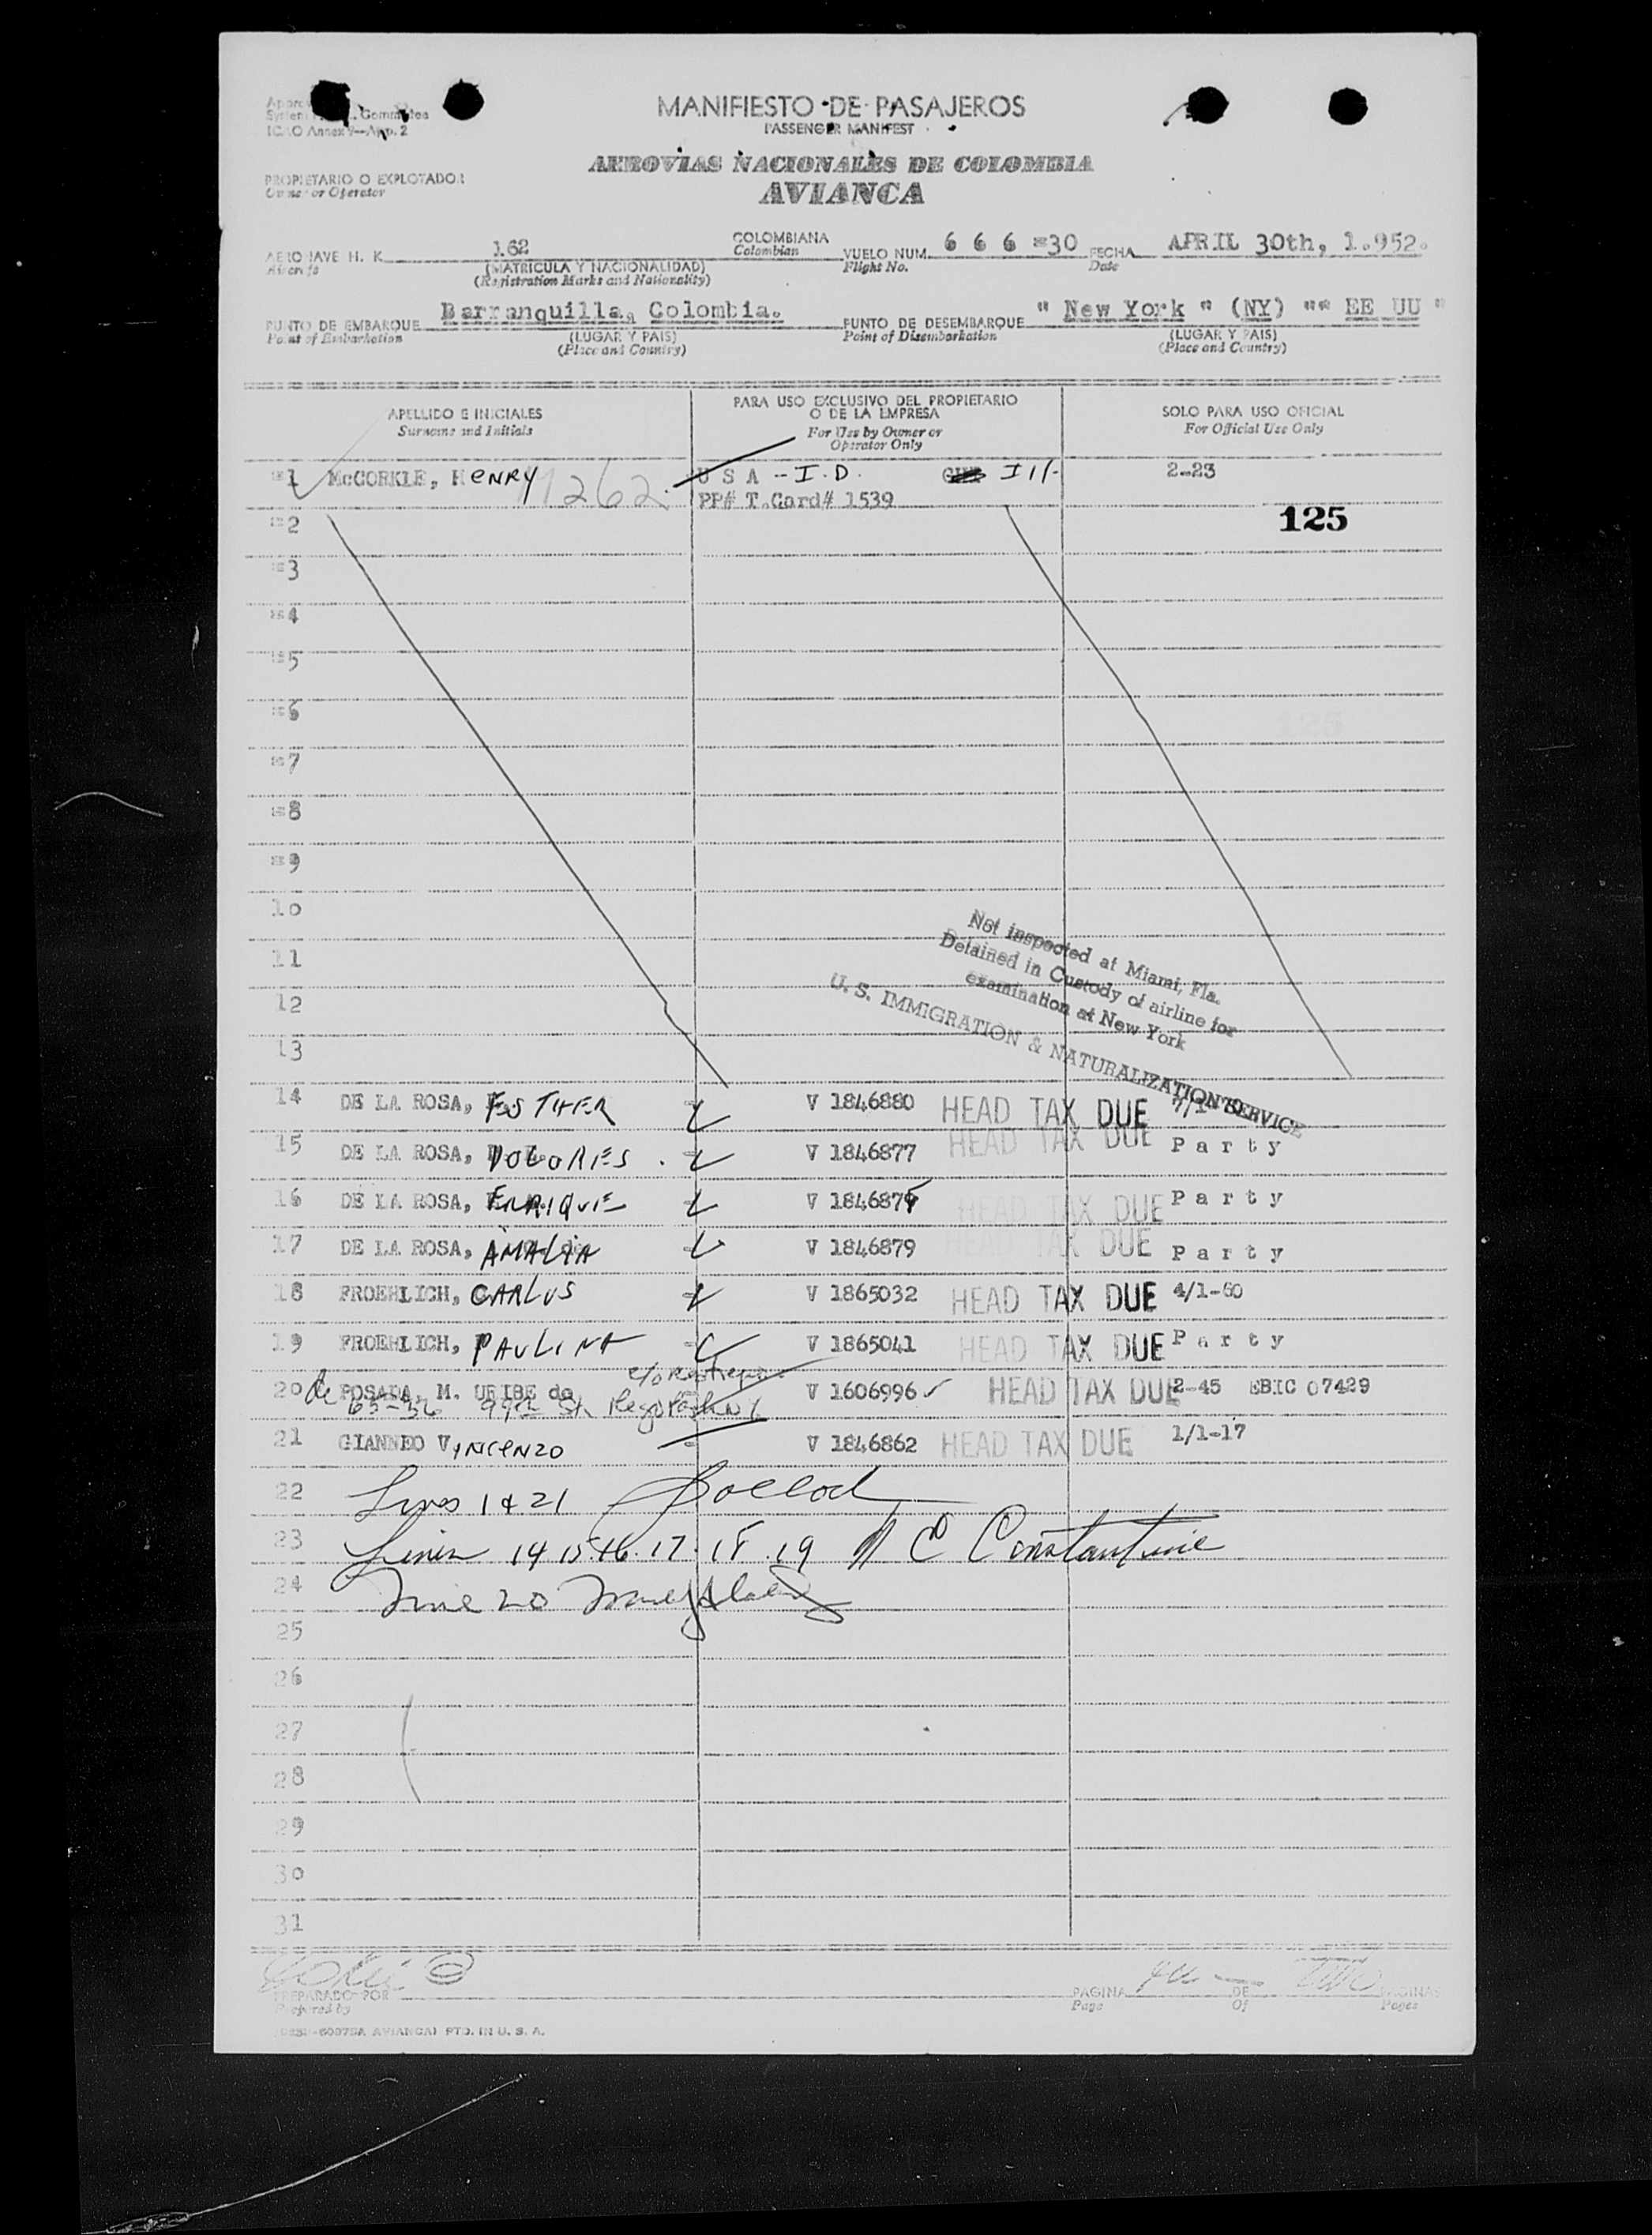 MANIFIESTO DE PASAJEROS
PASSENGER MANIFEST
ICAO Annex 9—App. 2
AEROVIAS NACIONALES DE COLOMBIA
AVIANCA
PROPIETARIO O EXPLOTADOR
Owner or Operator
AERONAVE H. K. 162 COLOMBIANA VUELO NUM. 6 6 6 =30 FECHA APRIL 30th, 1.952.
Aircraft (MATRICULA Y NACIONALIDAD) Colombian Flight No. Date
(Registration Marks and Nationality)
PUNTO DE EMBARQUE Barranquilla, Colombia. PUNTO DE DESEMBARQUE " New York " (NY) "" EE UU "
Point of Embarkation (LUGAR Y PAIS) Point of Disembarkation (LUGAR Y PAIS)
(Place and Country) (Place and Country)
APELLIDO E INICIALES PARA USO EXCLUSIVO DEL PROPIETARIO O DE LA EMPRESA SOLO PARA USO OFICIAL
Surname and Initials For Use by Owner or Operator Only For Official Use Only
=1 McCORKLE, HENRY 1262 U S A - I.D. I1/- 2-23
PP# T.Card# 1539
=2 125
=3
=4
=5
=6
=7
=8
=9
10
11
12
13
Not inspected at Miami, Fla.
Detained in Custody of airline for
examination at New York
U. S. IMMIGRATION & NATURALIZATION SERVICE
14 DE LA ROSA, ESTHER V 1846880 HEAD TAX DUE
15 DE LA ROSA, DOLORES V 1846877 HEAD TAX DUE Party
16 DE LA ROSA, ENRIQUE HEAD TAX DUE Party
17 DE LA ROSA, AMALIA V 1846879 HEAD TAX DUE Party
18 FROEHLICH, CARLOS V 1865032 HEAD TAX DUE 4/1-60
19 FROEHLICH, PAULINA V 1865041 HEAD TAX DUE Party
c/o Restrepo
20 de POSADA, M. URIBE de V 1606996 HEAD TAX DUE 2-45 EBIC 07429
99th St. Rego Park NY
21 GIANNEO VINCENZO V 1846862 HEAD TAX DUE 1/1-17
22 Lines 1 & 21
23 Lines 14 15 16. 17. 18. 19 A C Constantine
24 Line 20
25
26
27
28
29
30
31
PREPARADO POR PAGINA DE PAGINAS
Prepared by Page Of Pages
AVIANCA) PTD. IN U. S. A.